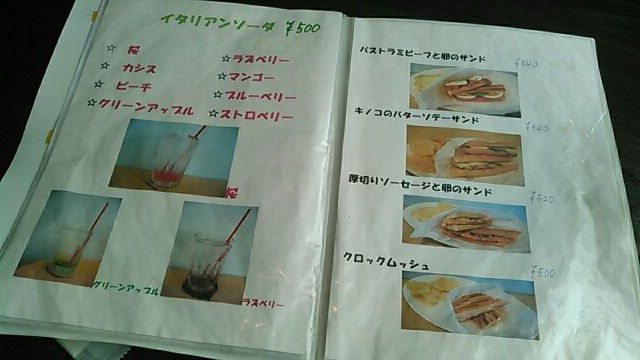 イタリアンソーダ ¥500
☆ 桜
☆ カシス
☆ ピーチ
☆グリーンアップル
☆ラズベリー
☆マンゴー
☆ブルーベリー
☆ストロベリー
桜
グリーンアップル
ラズベリー
パストラミビーフと卵のサンド ¥540
キノコのバターソテーサンド ¥540
厚切りソーセージと卵のサンド ¥520
クロックムッシュ ¥500